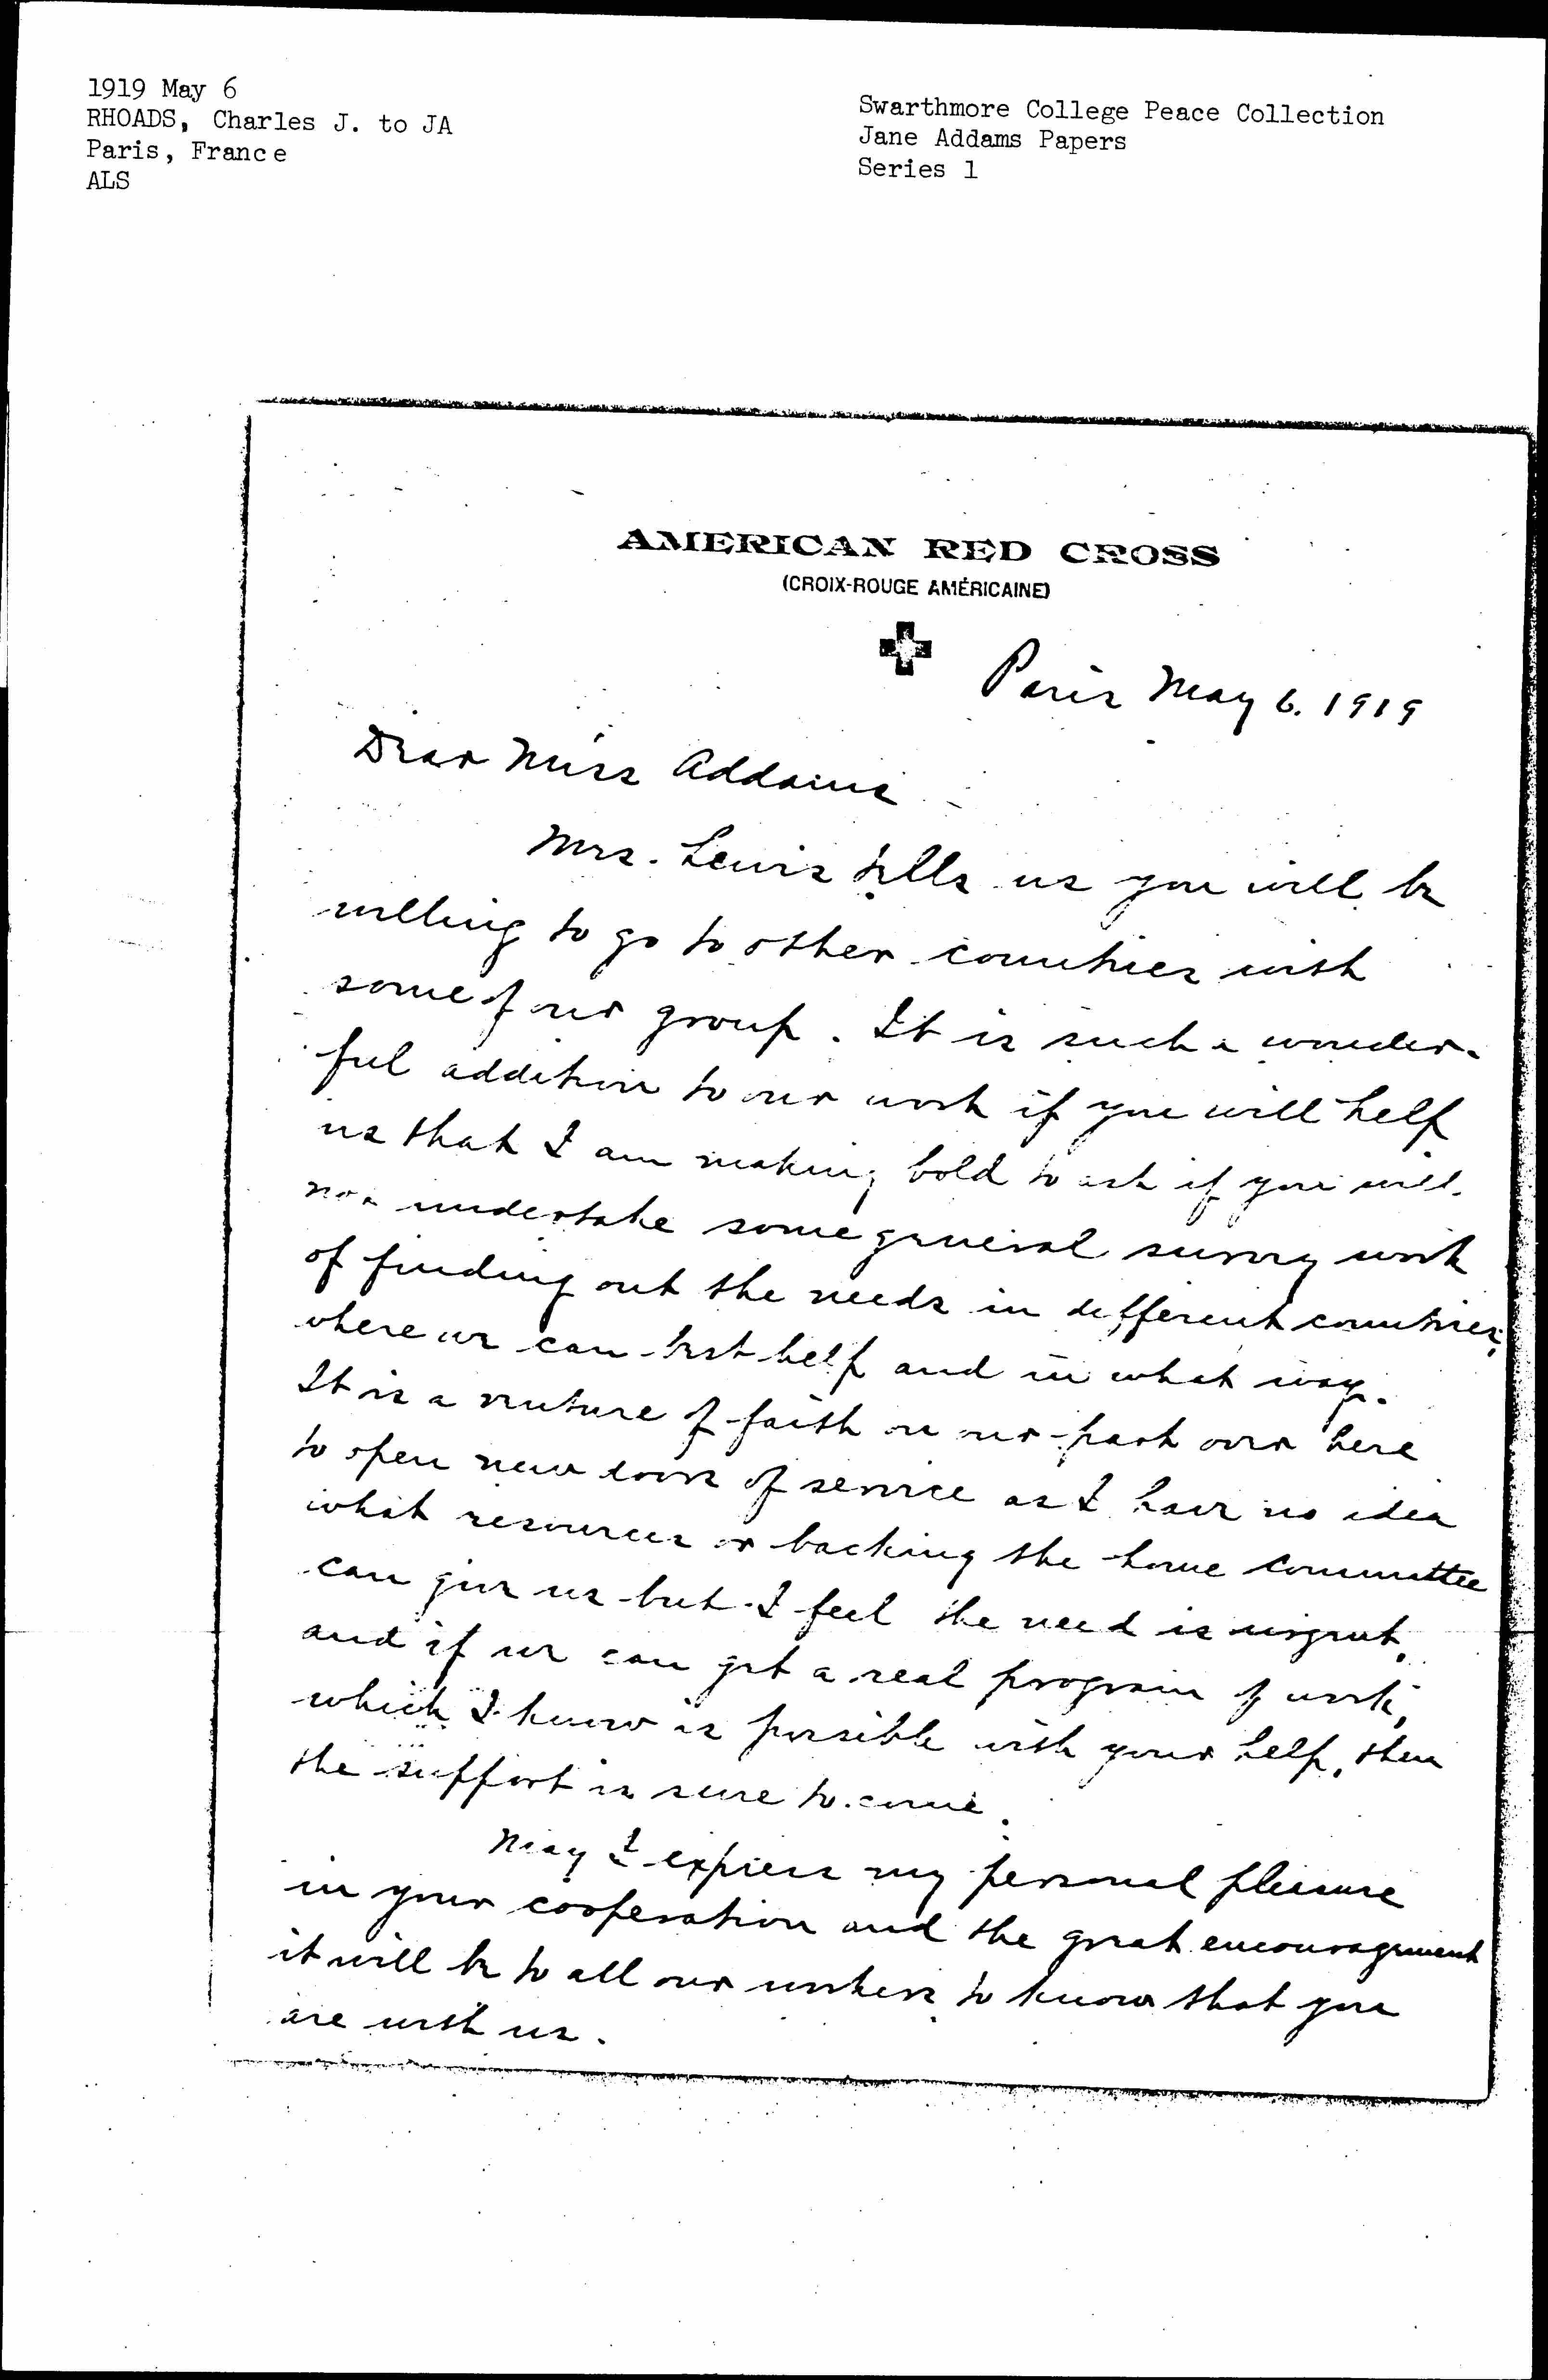 1919 May 6
RHOADS, Charles J. to JA
Paris, France
ALS
Swarthmore College Peace Collection
Jane Addams Papers
Series 1
AMERICAN RED CROSS
(CROIX-ROUGE AMÉRICAINE)
Paris May 6. 1919
Dear Miss Addams
Mrs. Lewis tells us you will be
willing to go to other countries with
some of our group. It is such a wonder-
ful addition to our work if you will help
us that I am making bold to ask if you will
not undertake some general survey work
of finding out the needs in different countries,
where we can best help and in what way.
It is a venture of faith on our part over here
to open new doors of service as I have no idea
what resources or backing the home committee
can give us but I feel the need is urgent,
and if we can get a real program of work,
which I know is possible with your help, then
the support is sure to come.
May I express my personal pleasure
in your cooperation and the great encouragement
it will be to all our workers to know that you
are with us.